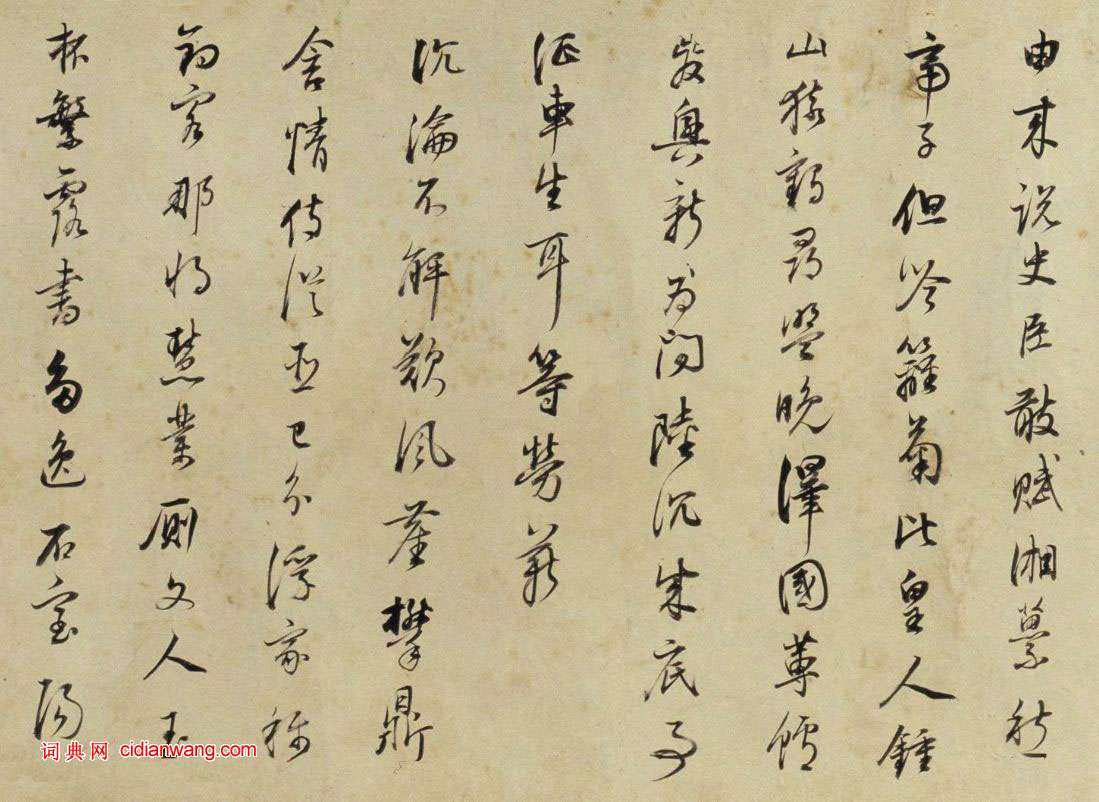 由来說史臣敢賦湘纍愁
帝子但吟籬菊比皇人鍾
山猿鶴尋盟晚澤國蓴鱸
發興新為問陸沉成底事
征車生耳等勞薪
沉淪不解歎風塵攀鼎
含情侍從臣已分浮家稱
釣客那將慧業廁文人玉
杯繁露書多逸石室陽
词典网 cidianwang.com